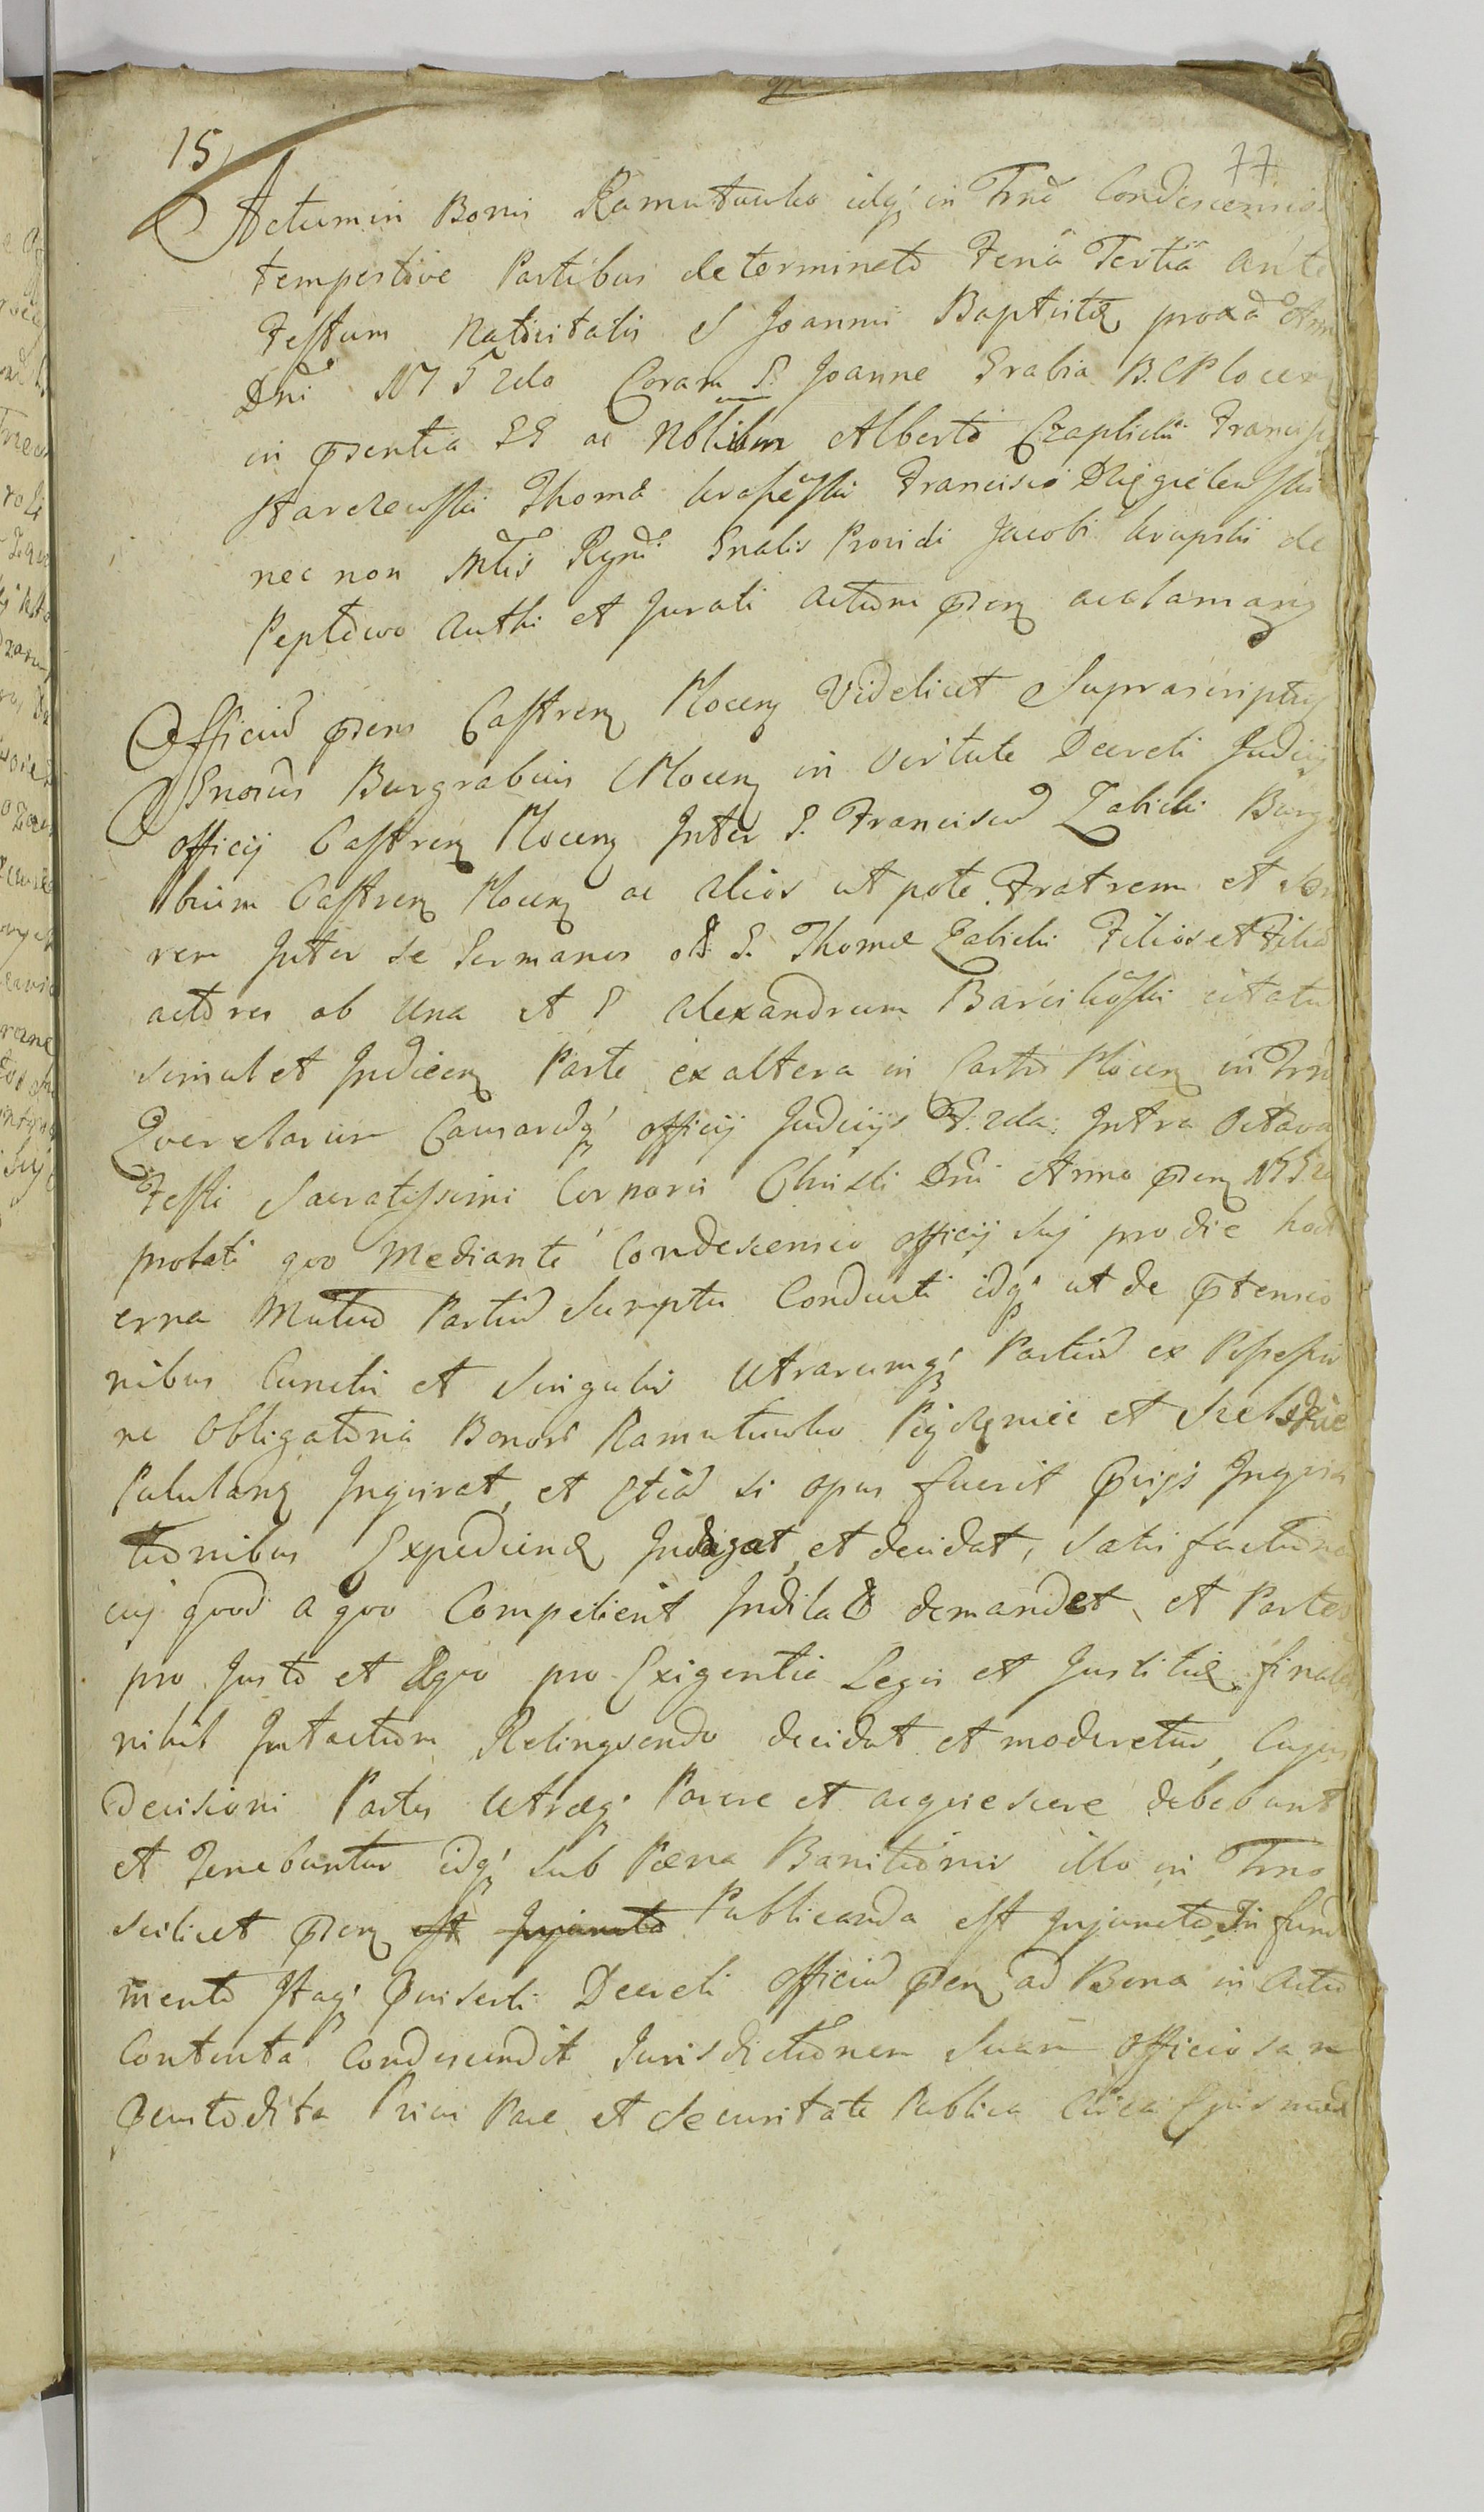 15
77
Actum in Bonis Ramutowko idq; in Trno Condescensio
tempestive Partibus determinato Feria Tertia ante
Festum Nativitatis S Joannis Baptistæ proxa Ann
Dni 1752do Coram G. Joanne Grabia B.C Plocen
in pñtia GG ac Nobilium Alberto Czaplicki Francisc
Starczewski Thoma Francisco Dzięgielewski
nec non Mtis Regni Gnalis Providi Jacobi Krupski de
Peplowo Authi et Jurati actum pñen acclamans
Officium pñens Castren Plocen Videlicet Suprascriptus
Gnosus Burgrabius Plocen in Virtute Decreti Judicij
officij Castren Plocen Inter G. Franciscum Zabicki Burgr
bium Castren Plocen ac alios ut pote Fratrem et Soro
rem Inter se Germanos olim G. Thomæ Zabicki Filios et Filiam
actores ab una et G Alexandrum Barcikoski citatum
simul et Judicem Parte ex altera in Castro Plocen in Trno
Querelarum Causarumq; officij Judicijs F. 2da Intra Octavas
Festi Sacratissimi Corporis Christi Dni Anno pñen 1752
probati quo Mediante Condescensio officij Sui pro die hodi
erna Mutuo Partium Scripta Conducti idq; ut de ptensio
nibus Cunctis et Singulis Utrarumq; Partium ex Possessio
ne Obligatoria Bonor Ramutowko et
Pululans Inquirat, et Etiam si opus fuerit pvijs Inquisi
tionibus Expediend Indagat, et decidat, Satisfactione
cuj quod a quo Competient Indilate demandet, et Partes
pro Justo et Æquo pro Exigentia Legis et Justitiæ finale
nihil Intactum Relinquendo decidat et moderetur, Cujus
decisioni Partes Utræq; Parere et acquiescere debebunt
et Tenebuntur idq; sub Pæna Banitionis illo in Trno
scilicet pñen est Injuncta Publicanda est Injuncta, In funda
mento Itaq; pinserti Decreti officium pñen ad Bona in Actu
Contenta Condescendit Jurisdictionem Suam officiosam
pcustodita Prius Pace et Securitate Publica Circa Ejusmodi